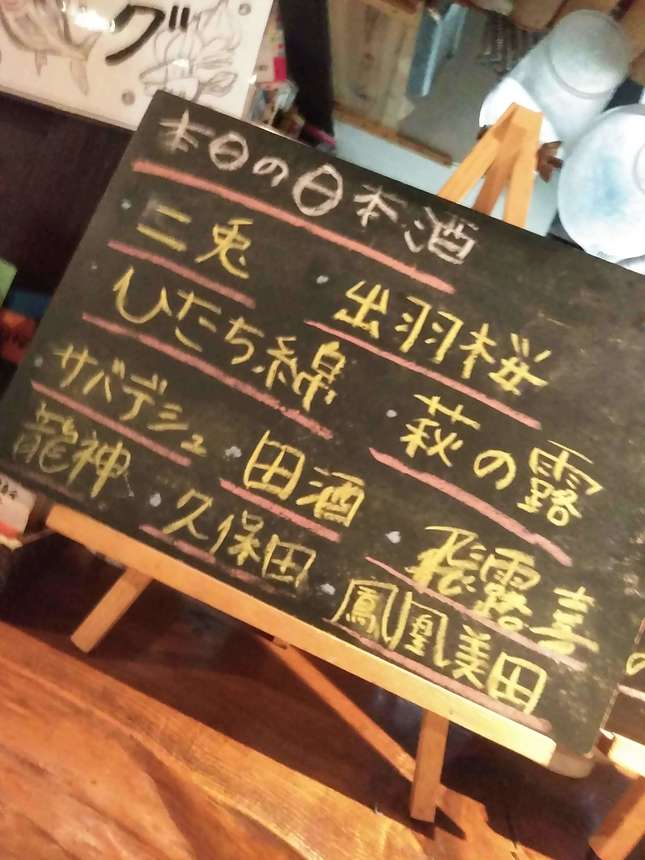 グ
本日の日本酒
・二兎
・出羽桜
ひたち錦
・萩の露
・サバデシュ
・田酒
・飛露喜
龍神
・久保田
・鳳凰美田